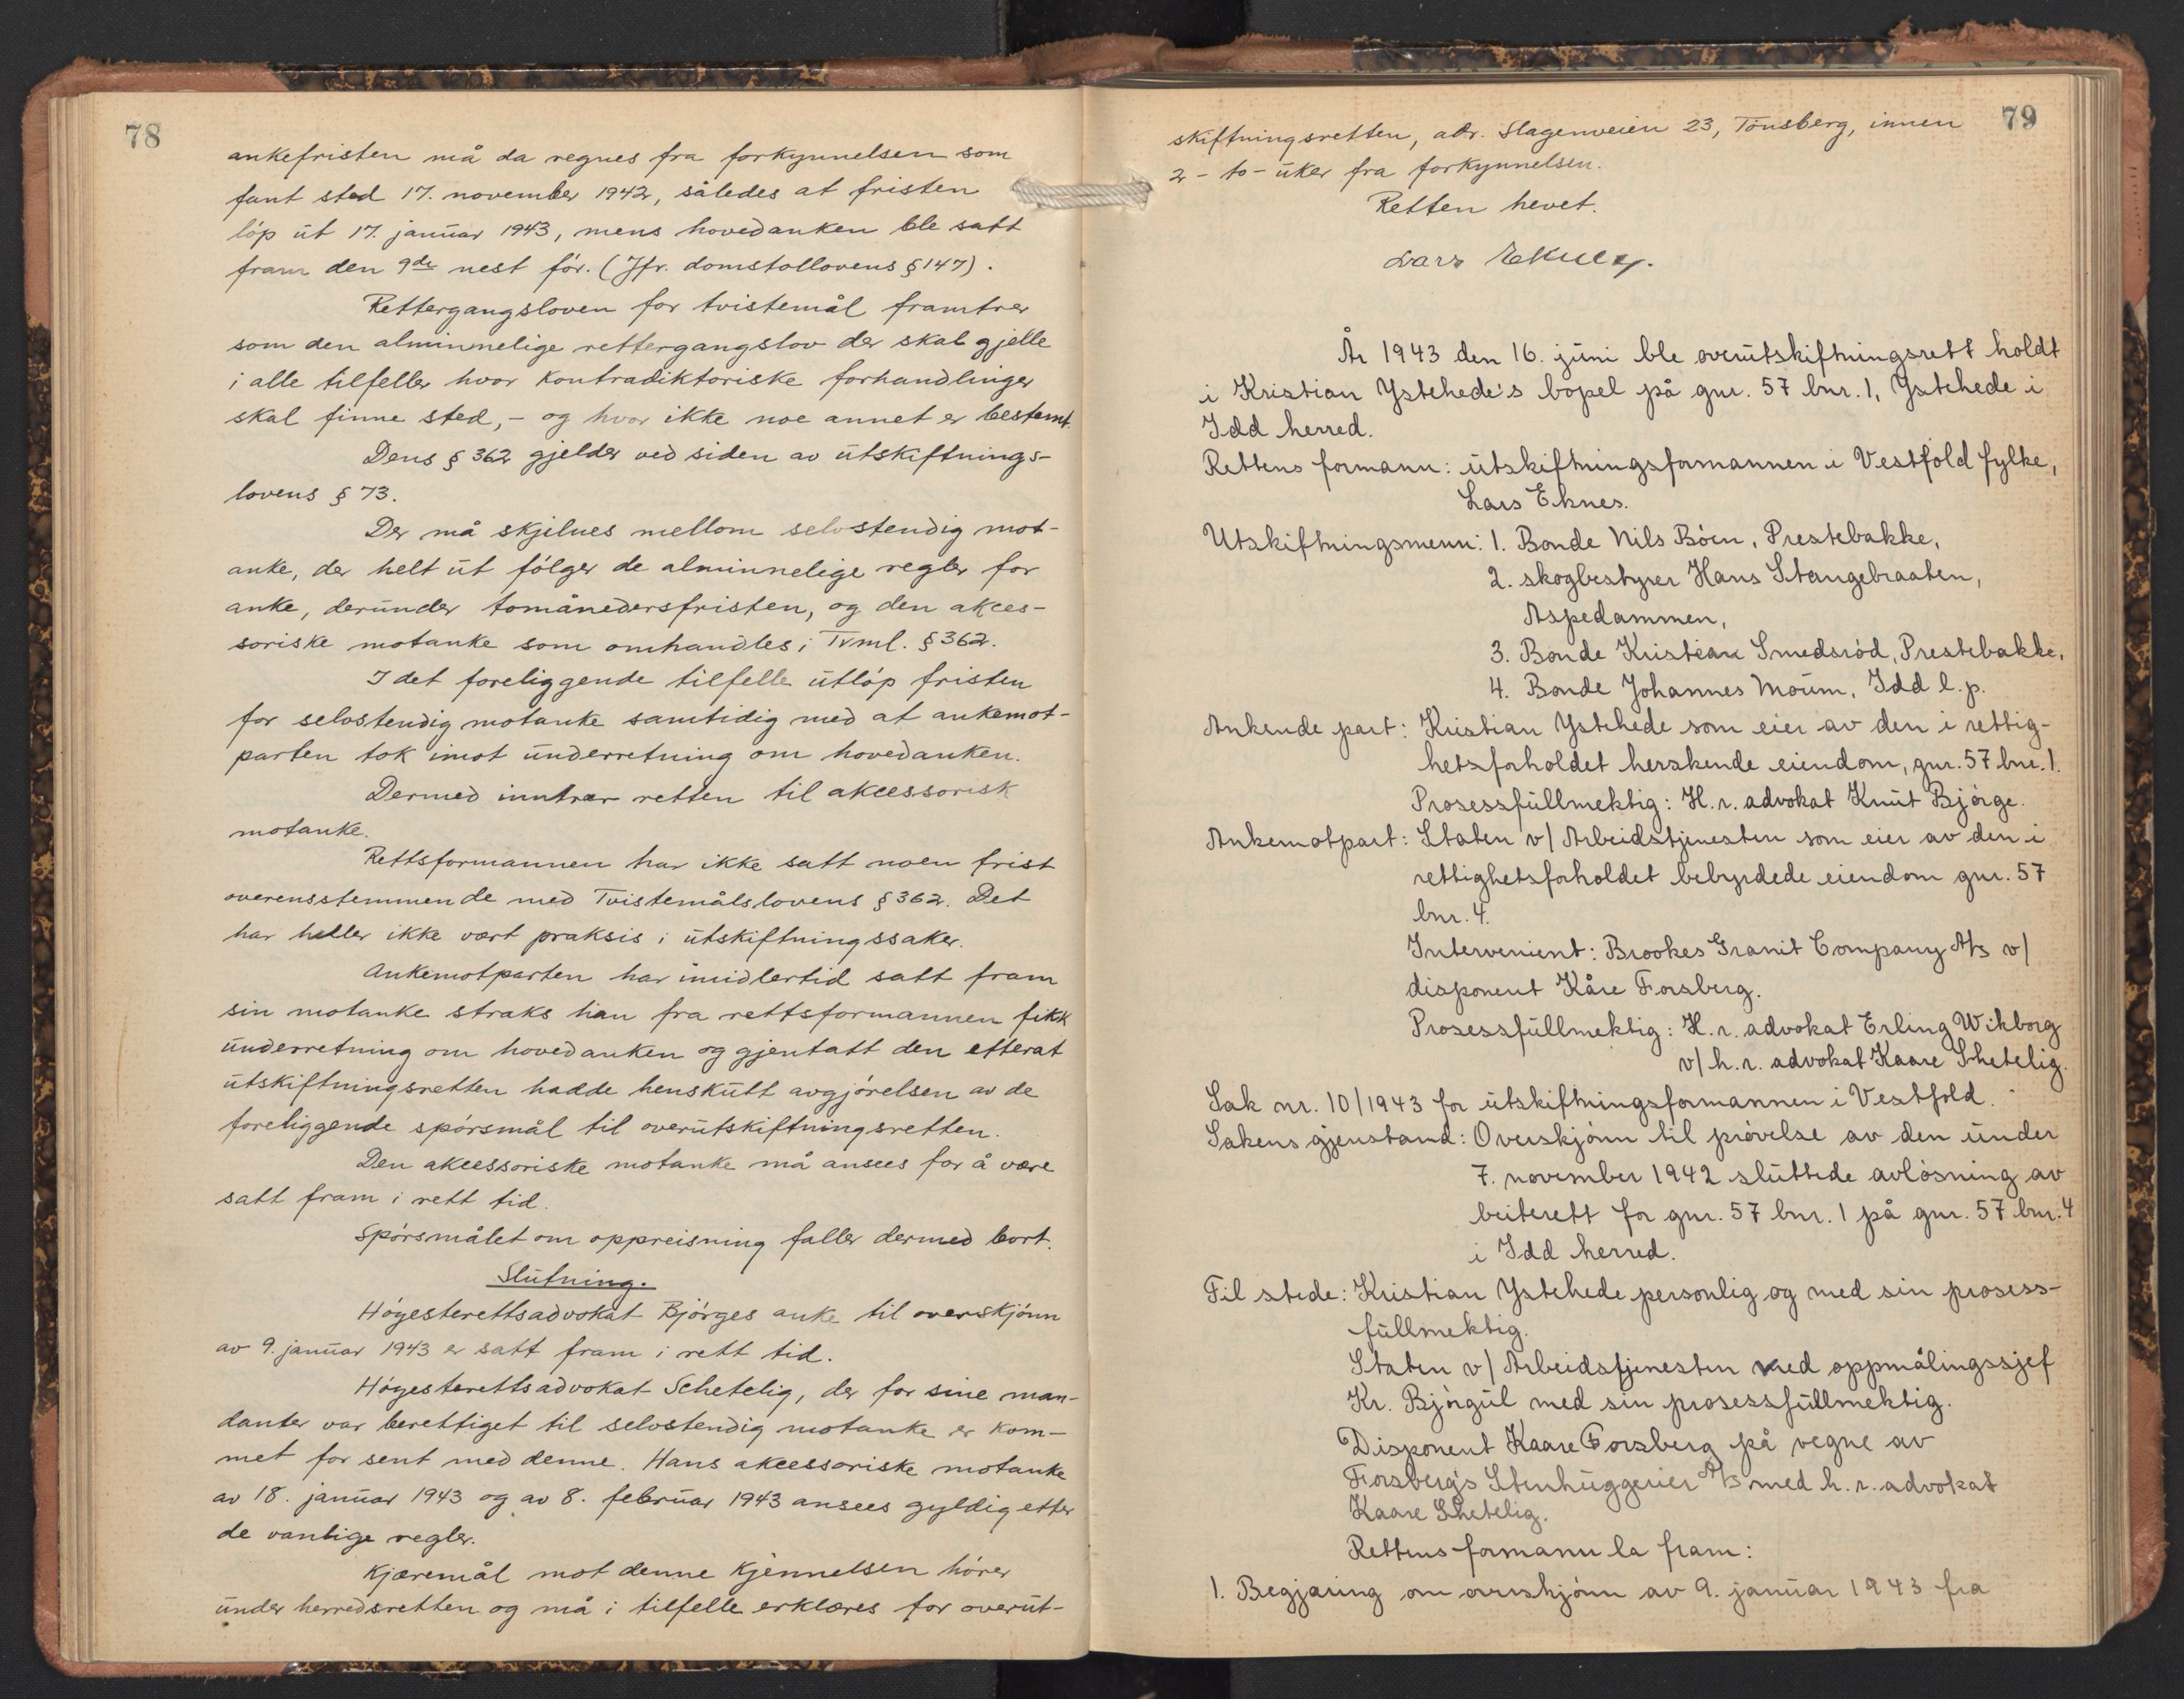 78
ankefristen må da regnes fra forkynnelsen som
fant sted 17. november 1942, således at fristen
løp ut 17. januar 1943, mens hovedanken ble satt
fram den 9de nest før. (Jfr. domstollovens § 147).
Rettergangsloven for tvistemål framtrer
som den alminnelige rettergangslov der skal gjelle
i alle tilfeller hvor kontradiktoriske forhandlinger
skal finne sted, - og hvor ikke noe annet er bestemt.
Dens § 362 gjelder ved siden av utskiftnings-
lovens § 73.
Der må skjelnes mellom selvstendig mot-
anke, der helt ut følger de alminnelige regler for
anke, derunder tomånedersfristen, og den akces-
soriske motanke som omhandles i Tvml. § 362.
I det foreliggende tilfelle utløp fristen
for selvstendig motanke samtidig med at ankemot-
parten tok imot underretning om hovedanken.
Dermed inntrær retten til akcessorisk
motanke.
Rettsformannen har ikke satt noen frist
overensstemmende med Tvistemålslovens § 362. Det
har heller ikke vært praksis i utskiftningssaker.
Ankemotparten har imidlertid satt fram
sin motanke straks han fra rettsformannen fikk
underretning om hovedanken og gjentatt den etterat
utskiftningsretten hadde henskutt avgjørelsen av de
foreliggende spørsmål til overutskiftningsretten.
Den akcessoriske motanke må ansees for å være
satt fram i rett tid.
Spørsmålet om oppreisning faller dermed bort.
Slutning.
Høyesterettsadvokat Bjørges anke til overskjønn
av 9. januar 1943 er satt fram i rett tid.
Høyesterettsadvokat Schetelig, der for sine man-
danter var berettiget til selvstendig motanke er kom-
met for sent med denne. Hans akcessoriske motanke
av 18. januar 1943 og av 8. februar 1943 ansees gyldig etter
de vanlige regler.
Kjæremål mot denne kjennelsen hører
under herredsretten og må i tilfelle erklæres for overut-
79
skiftningsretten, adr. Slagenveien 23, Tønsberg, innen
2 - to - uker fra forkynnelsen.
Retten hevet.
Lars Eknes.
År 1943 den 16. juni ble overutskiftningsrett holdt
i Kristian Ystehede's bopel på gnr. 57 bnr. 1, Ystehede i
Idd herred.
Rettens formann: utskiftningsformannen i Vestfold fylke,
Lars Eknes.
Utskiftningsmenn: 1. Bonde Nils Böen, Prestebakke,
2. skogbestyrer Hans Stangebraaten,
Aspedammen,
3. Bonde Kristian Smedsröd, Prestebakke,
4. Bonde Johannes Moum, Idd l.p.
Ankende part: Kristian Ystehede som eier av den i rettig-
hetsforholdet herskende eiendom, gnr. 57 bnr. 1.
Prosessfullmektig: H.r. advokat Knut Bjørge.
Ankemotpart: Staten v/ Arbeidstjenesten som eier av den i
rettighetsforholdet bebyrdede eiendom gnr. 57
bnr. 4.
Intervenient: Brookes Granit Company A/s v/
disponent Kåre Forsberg.
Prosessfullmektig: H.r. advokat Erling Wikborg
v/ h.r. advokat Kaare Shetelig.
Sak nr. 10/1943 for utskiftningsformannen i Vestfold.
Sakens gjenstand: Overskjønn til prøvelse av den under
7. november 1942 sluttede avløsning av
beiterett for gnr. 57 bnr. 1 på gnr. 57 bnr. 4
i Idd herred.
Til stede: Kristian Ystehede personlig og med sin prosess-
fullmektig.
Staten v/ Arbeidstjenesten ved oppmålingssjef
Kr. Bjørgul med sin prosessfullmektig.
Disponent Kaare Forsberg på vegne av
Forsberg's Stenhuggerier A/s med h.r. advokat
Kaare Shetelig.
Rettens formann la fram:
1. Begjæring om overskjønn av 9. januar 1943 fra